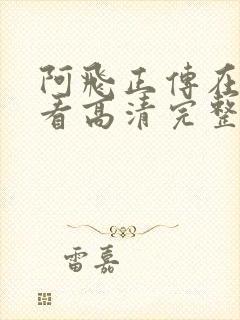 阿飛正傳在
看高清完整
雷嘉